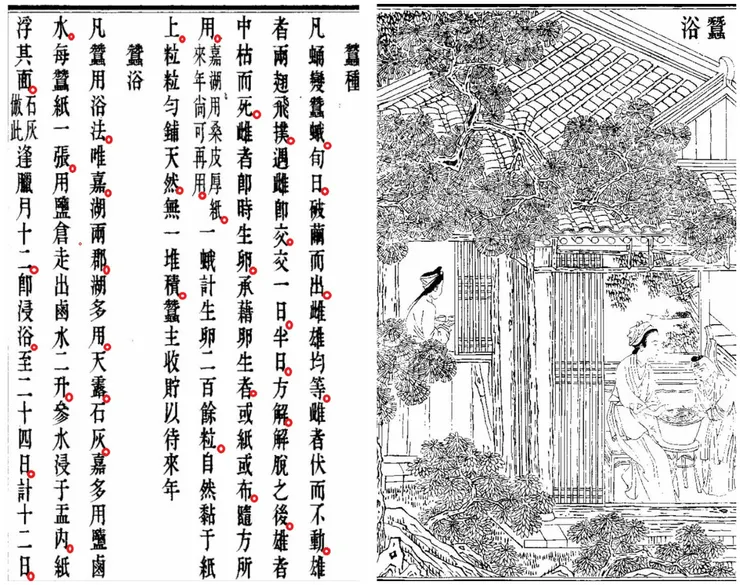 蠶種
凡蛹變蠶蛾旬日破繭而出。雌雄均等。雌者伏而不動雄
者兩翅飛撲。遇雌即交。交一日。半日。方解。解脫之後。雄者
中枯而死。雌者即時生卵。承藉卵生者。或紙或布。隨方所
用。嘉湖用桑皮厚紙。來年尚可再用。一蛾計生卵二百餘粒。自然黏于紙
上。粒粒勻鋪天然。無一堆積。蠶主收貯以待來年
蠶浴
凡蠶用浴法。唯嘉。湖兩郡。湖多用天露。石灰。嘉多用鹽鹵
水。每蠶紙一張。用鹽倉走出鹵水二升。參水浸于盂內。紙
浮其面。石灰倣此逢臘月十二。即浸浴。至二十四日。計十二日。
蠶浴